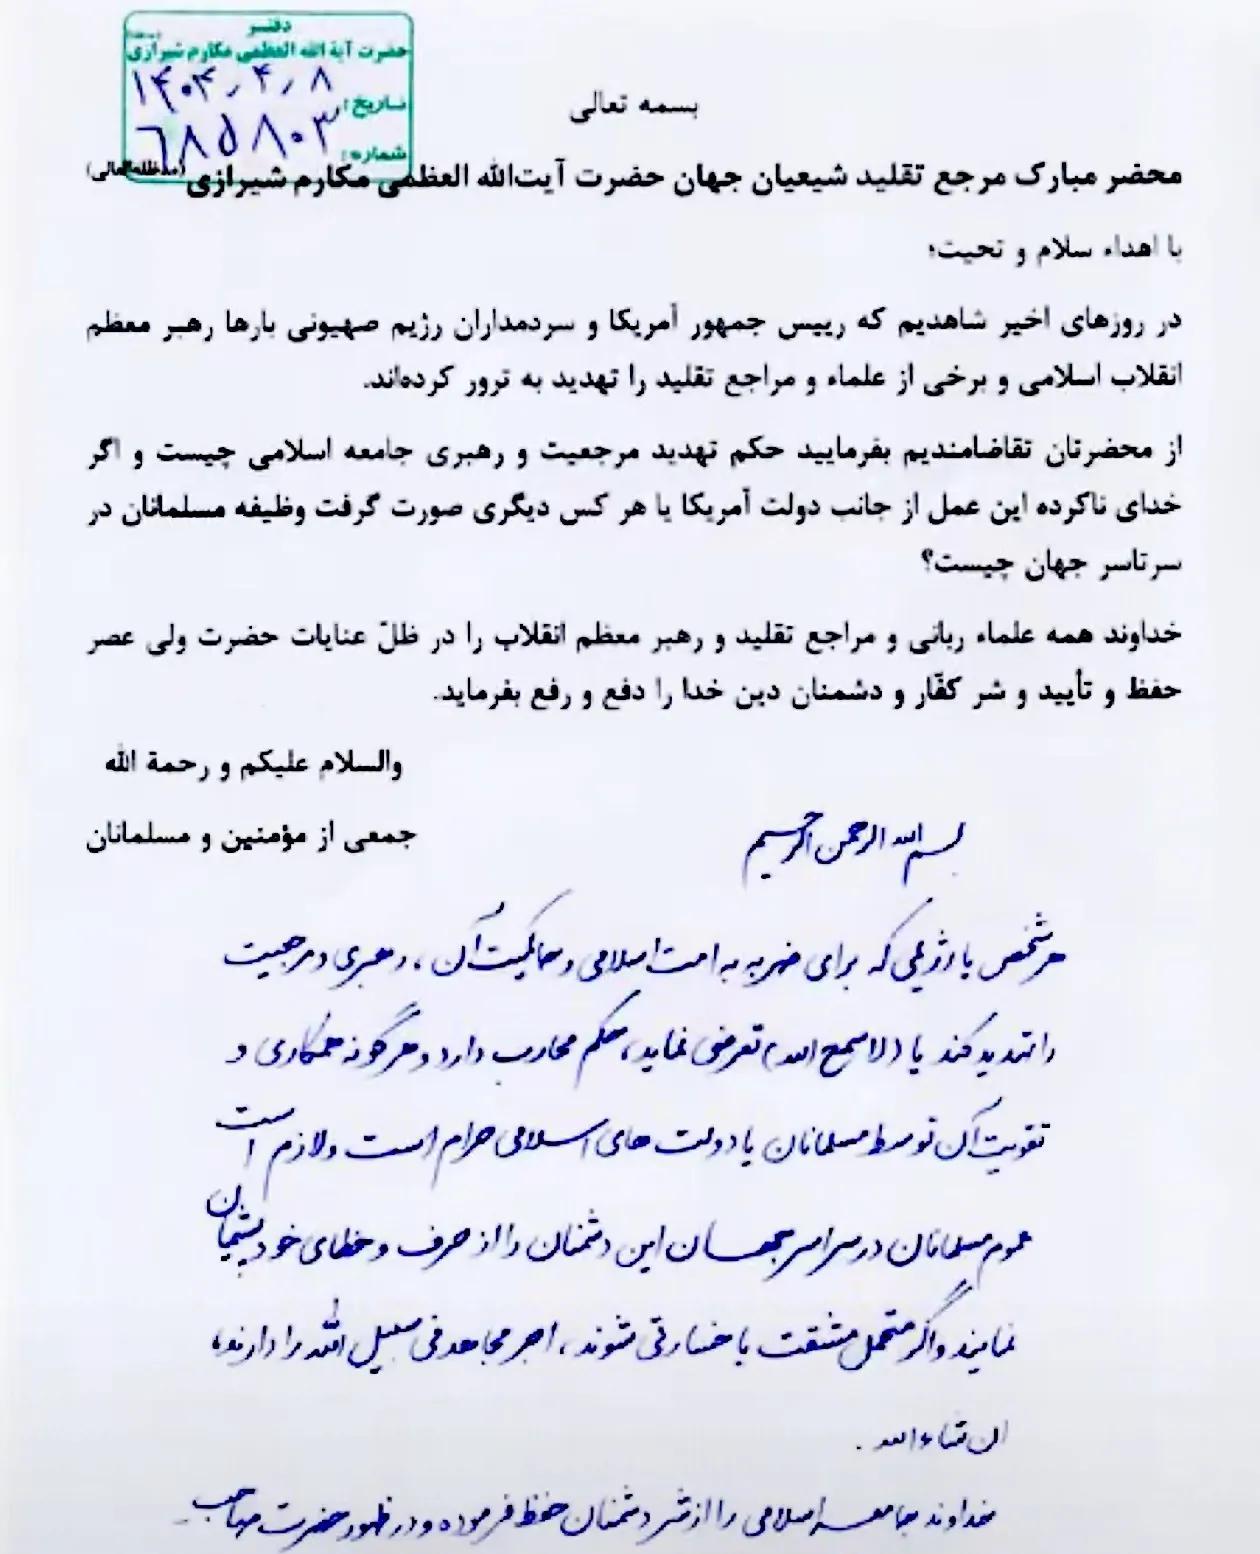 دفتر
حضرت آیة الله العظمی مکارم شیرازی
تاریخ: ۱۴۰۴٫۴٫۸
شماره: ۶۸۵۸۰۳
بسمه تعالی
محضر مبارک مرجع تقلید شیعیان جهان حضرت آیت‌الله العظمی مکارم شیرازی (مدظله‌العالی)
با اهداء سلام و تحیت؛
در روزهای اخیر شاهدیم که رییس جمهور آمریکا و سردمداران رژیم صهیونی بارها رهبر معظم
انقلاب اسلامی و برخی از علماء و مراجع تقلید را تهدید به ترور کرده‌اند.
از محضرتان تقاضامندیم بفرمایید حکم تهدید مرجعیت و رهبری جامعه اسلامی چیست و اگر
خدای ناکرده این عمل از جانب دولت آمریکا یا هر کس دیگری صورت گرفت وظیفه مسلمانان در
سرتاسر جهان چیست؟
خداوند همه علماء ربانی و مراجع تقلید و رهبر معظم انقلاب را در ظلّ عنایات حضرت ولی عصر
حفظ و تأیید و شر کفّار و دشمنان دین خدا را دفع و رفع بفرماید.
والسلام علیکم و رحمة الله
جمعی از مؤمنین و مسلمانان
بسم الله الرحمن الرحیم
هر شخص یا رژیمی که برای ضربه به امت اسلامی و حاکمیت آن، رهبری و مرجعیت
را تهدید کند یا (لاسمح الله) تعرضی نماید، حکم محارب دارد و هرگونه همکاری و
تقویت آن توسط مسلمانان یا دولت های اسلامی حرام است و لازم است
عموم مسلمانان در سراسر جهان این دشمنان را از حرف و خطای خود پشیمان
نمایند و اگر متحمل مشقت یا خسارتی شوند، اجر مجاهد فی سبیل الله را دارند،
ان شاء الله.
خداوند جامعه اسلامی را از شر دشمنان حفظ فرموده و در ظهور حضرت صاحب